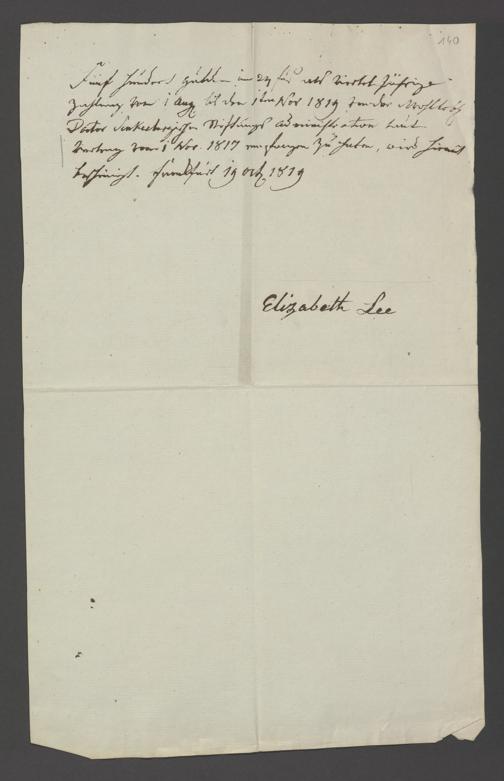 140
Fünf hundert Gulden im 24 fl. als viertel Jährige
Zahlung vom 1 Aug bis den 1ten Nov 1819, von der Wohllöbl
Doctor Senkenbergischen Stiftungs Administration laut
Vertrag vom 1 Nov. 1817 empfangen zu haben, wird hiermit
bescheinigt. Frankfurt 19 Oct 1819
Elizabeth Lee